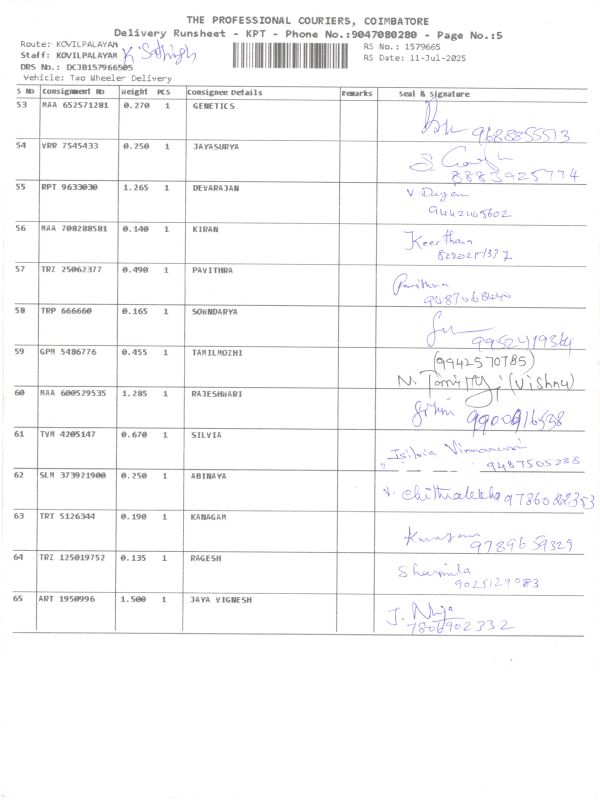 THE PROFESSIONAL COURIERS, COIMBATORE
Delivery Runsheet - KPT - Phone No.:9047080280 - Page No.:5
Route: KOVILPALAYAM RS No.: 1579665
Staff: KOVILPALAYAM RS Date: 11-Jul-2025
DRS No.: DCJB157966505
Vehicle: Two Wheeler Delivery
S No Consignment No Weight PCS Consignee Details Remarks Seal & Signature
53 MAA 652571281 0.270 1 GENETICS
9688855513
54 VRR 7545433 0.250 1 JAYASURYA
8883925774
55 RPT 9633030 1.265 1 DEVARAJAN
9442445602
56 MAA 708288581 0.140 1 KIRAN
Keerthan
57 TRZ 25062377 0.490 1 PAVITHRA
Pavithra
58 TRP 666660 0.165 1 SOWNDARYA
9952419364
59 GPM 5486776 0.455 1 TAMILMOZHI
(9942570785)
(Vishnu)
60 MAA 600529535 1.285 1 RAJESHWARI
61 TVM 4205147 0.670 1 SILVIA
9487505288
62 SLM 373921900 0.250 1 ABINAYA
V. Chithralekha 9786082353
63 TRT 5126344 0.190 1 KANAGAM
9789659329
64 TRZ 125019752 0.135 1 RAGESH
Sharmila
9025129083
65 ART 1950996 1.500 1 JAYA VIGNESH
7806902332